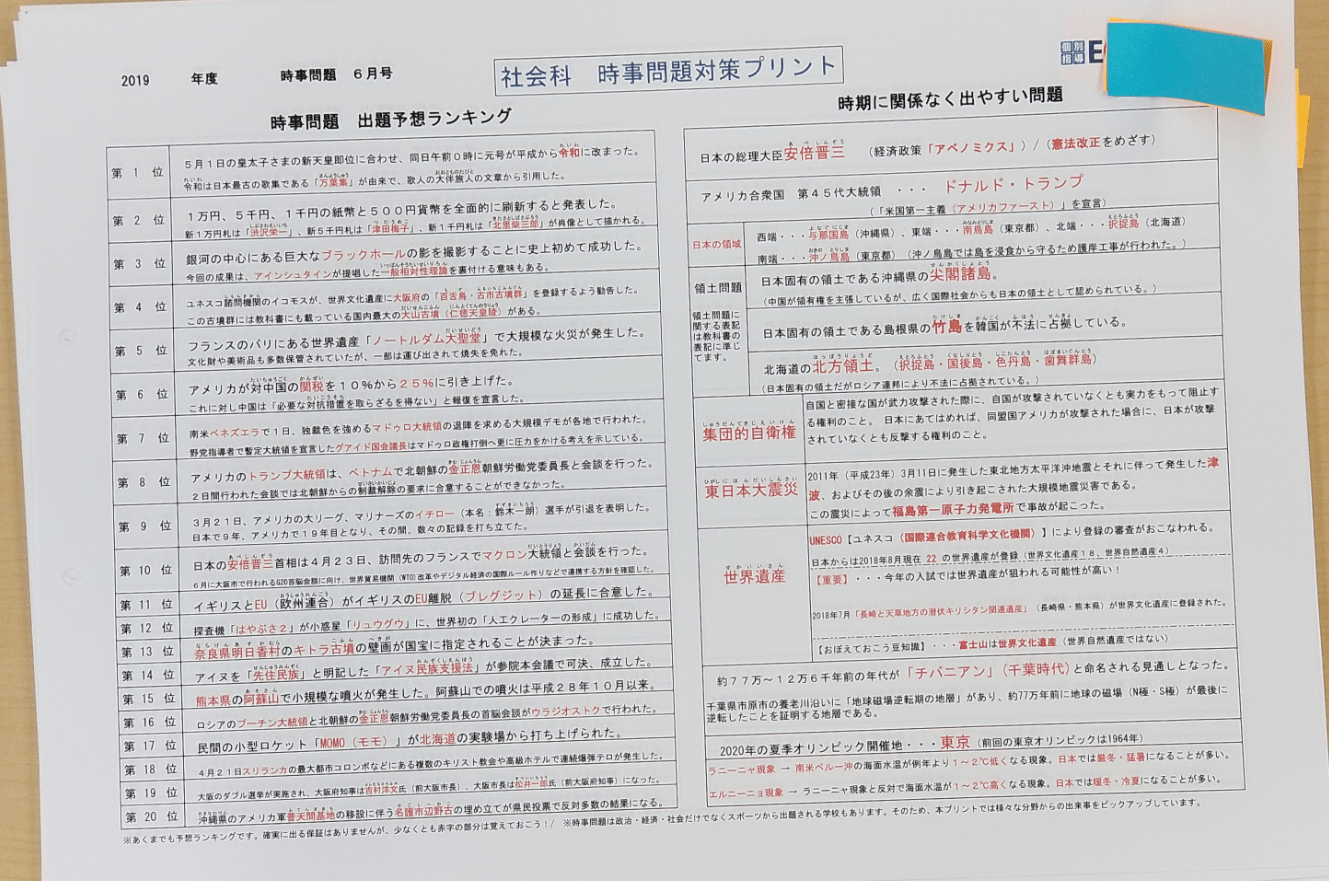 2019 年度 時事問題 6月号
社会科 時事問題対策プリント
個別
指導
E
時事問題 出題予想ランキング
第 1 位
5月1日の皇太子さまの新天皇即位に合わせ、同日午前0時に元号が平成から令和に改まった。
令和は日本最古の歌集である「万葉集」が由来で、歌人の大伴旅人の文章から引用した。
第 2 位
1万円、5千円、1千円の紙幣と500円貨幣を全面的に刷新すると発表した。
新1万円札は「渋沢栄一」、新5千円札は「津田梅子」、新1千円札は「北里柴三郎」が肖像として描かれる。
第 3 位
銀河の中心にある巨大なブラックホールの影を撮影することに史上初めて成功した。
今回の成果は、アインシュタインが提唱した一般相対性理論を裏付ける意味もある。
第 4 位
ユネスコ諮問機関のイコモスが、世界文化遺産に大阪府の「百舌鳥・古市古墳群」を登録するよう勧告した。
この古墳群には教科書にも載っている国内最大の大山古墳(仁徳天皇陵)がある。
第 5 位
フランスのパリにある世界遺産「ノートルダム大聖堂」で大規模な火災が発生した。
文化財や美術品も多数保管されていたが、一部は運び出されて焼失を免れた。
第 6 位
アメリカが対中国の関税を10%から25%に引き上げた。
これに対し中国は「必要な対抗措置を取らざるを得ない」と報復を宣言した。
第 7 位
南米ベネズエラで1日、独裁色を強めるマドゥロ大統領の退陣を求める大規模デモが各地で行われた。
野党指導者で暫定大統領を宣言したグアイド国会議長はマドゥロ政権打倒へ更に圧力をかける考えを示している。
第 8 位
アメリカのトランプ大統領は、ベトナムで北朝鮮の金正恩朝鮮労働党委員長と会談を行った。
2日間行われた会談では北朝鮮からの制裁解除の要求に合意することができなかった。
第 9 位
3月21日、アメリカの大リーグ、マリナーズのイチロー(本名:鈴木一朗)選手が引退を表明した。
日本で9年、アメリカで19年目となり、その間、数々の記録を打ち立てた。
第 10 位
日本の安倍晋三首相は4月23日、訪問先のフランスでマクロン大統領と会談を行った。
6月に大阪市で行われるG20首脳会談に向け、世界貿易機関(WTO)改革やデジタル経済の国際ルール作りなどで連携する方針を確認した。
第 11 位
イギリスとEU(欧州連合)がイギリスのEU離脱(ブレグジット)の延長に合意した。
第 12 位
探査機「はやぶさ2」が小惑星「リュウグウ」に、世界初の「人工クレーターの形成」に成功した。
第 13 位
奈良県明日香村のキトラ古墳の壁画が国宝に指定されることが決まった。
第 14 位
アイヌを「先住民族」と明記した「アイヌ民族支援法」が参院本会議で可決、成立した。
第 15 位
熊本県の阿蘇山で小規模な噴火が発生した。阿蘇山での噴火は平成28年10月以来。
第 16 位
ロシアのプーチン大統領と北朝鮮の金正恩朝鮮労働党委員長の首脳会談がウラジオストクで行われた。
第 17 位
民間の小型ロケット「MOMO(モモ)」が北海道の実験場から打ち上げられた。
第 18 位
4月21日スリランカの最大都市コロンボなどにある複数のキリスト教会や高級ホテルで連続爆弾テロが発生した。
第 19 位
大阪のダブル選挙が実施され、大阪府知事は吉村洋文氏(前大阪市長)、大阪市長は松井一郎氏(前大阪府知事)になった。
第 20 位
沖縄県のアメリカ軍普天間基地の移設に伴う名護市辺野古の埋め立てが県民投票で反対多数の結果になる。
時期に関係なく出やすい問題
日本の総理大臣安倍晋三 (経済政策「アベノミクス」)/(憲法改正をめざす)
アメリカ合衆国 第45代大統領 ・・・ ドナルド・トランプ
(「米国第一主義(アメリカファースト)」を宣言)
日本の領域
西端・・・与那国島(沖縄県)、東端・・・南鳥島(東京都)、北端・・・択捉島(北海道)
南端・・・沖ノ鳥島(東京都)(沖ノ鳥島では島を浸食から守るため護岸工事が行われた。)
領土問題
領土問題に
関する表記
は教科書の
表記に準じ
てます。
日本固有の領土である沖縄県の尖閣諸島。
(中国が領有権を主張しているが、広く国際社会からも日本の領土として認められている。)
日本固有の領土である島根県の竹島を韓国が不法に占拠している。
北海道の北方領土。(択捉島・国後島・色丹島・歯舞群島)
(日本固有の領土だがロシア連邦により不法に占拠されている。)
集団的自衛権
自国と密接な国が武力攻撃された際に、自国が攻撃されていなくとも実力をもって阻止す
る権利のこと。 日本にあてはめれば、同盟国アメリカが攻撃された場合に、日本が攻撃
されていなくとも反撃する権利のこと。
東日本大震災
2011年(平成23年)3月11日に発生した東北地方太平洋沖地震とそれに伴って発生した津
波、およびその後の余震により引き起こされた大規模地震災害である。
この震災によって福島第一原子力発電所で事故が起こった。
世界遺産
UNESCO【ユネスコ(国際連合教育科学文化機関)】により登録の審査がおこなわれる。
日本からは2018年8月現在 22 の世界遺産が登録(世界文化遺産18、世界自然遺産4)
【重要】・・・今年の入試では世界遺産が狙われる可能性が高い!
2018年7月「長崎と天草地方の潜伏キリシタン関連遺産」(長崎県・熊本県)が世界文化遺産に登録された。
【おぼえておこう豆知識】・・・富士山は世界文化遺産(世界自然遺産ではない)
約77万~12万6千年前の年代が「チバニアン」(千葉時代)と命名される見通しとなった。
千葉県市原市の養老川沿いに「地球磁場逆転期の地層」があり、約77万年前に地球の磁場(N極・S極)が最後に
逆転したことを証明する地層である。
2020年の夏季オリンピック開催地・・・東京(前回の東京オリンピックは1964年)
ラニーニャ現象 → 南米ペルー沖の海面水温が例年より1~2℃低くなる現象。日本では厳冬・猛暑になることが多い。
エルニーニョ現象 → ラニーニャ現象と反対で海面水温が1~2℃高くなる現象。日本では暖冬・冷夏になることが多い。
※あくまでも予想ランキングです。確実に出る保証はありませんが、少なくとも赤字の部分は覚えておこう!/ ※時事問題は政治・経済・社会だけでなくスポーツから出題される学校もあります。そのため、本プリントでは様々な分野からの出来事をピックアップしています。